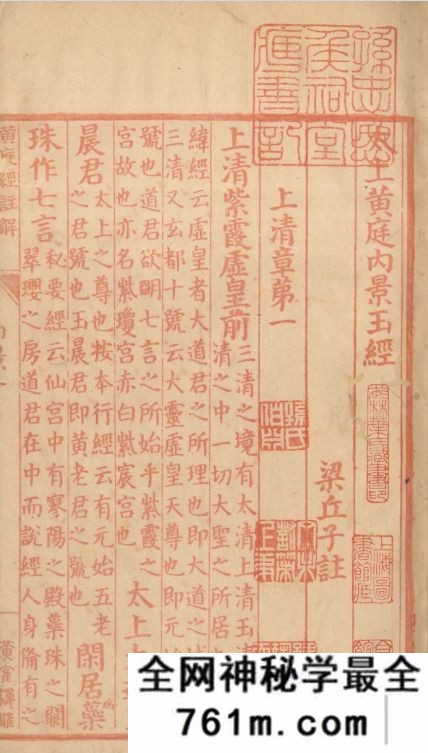 太上黃庭內景玉經
梁丘子註
上清章第一
上清紫霞虛皇前
三清之境有太清上清玉
清之中一切大聖之所居
緯經云虛皇者大道君之所理也即大道之
三清又玄都十號云大靈虛皇天尊也即元
號也道君欲明七言之所始乎紫霞之
宮故也亦名紫瓊宮赤白紫宸宮也
太上
晨君
太上之尊也按本行經云有元始五老
之君號也玉晨君即黃老君之號也
閑居蘂
珠作七言
祕要經云仙宮中有寥陽之殿蘂珠之闕
翠瓔之房道君在中而說經人身備有之
黃庭經註解
孫忠愍侯祠堂藏書記
孫氏伯淵
上海圖書館藏
全网神秘学最全
761m.com